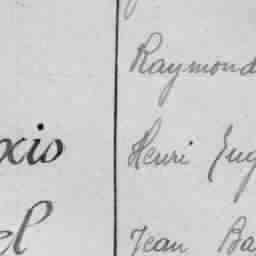 Raymond
xis
Henri Eug
el
Jean Ba